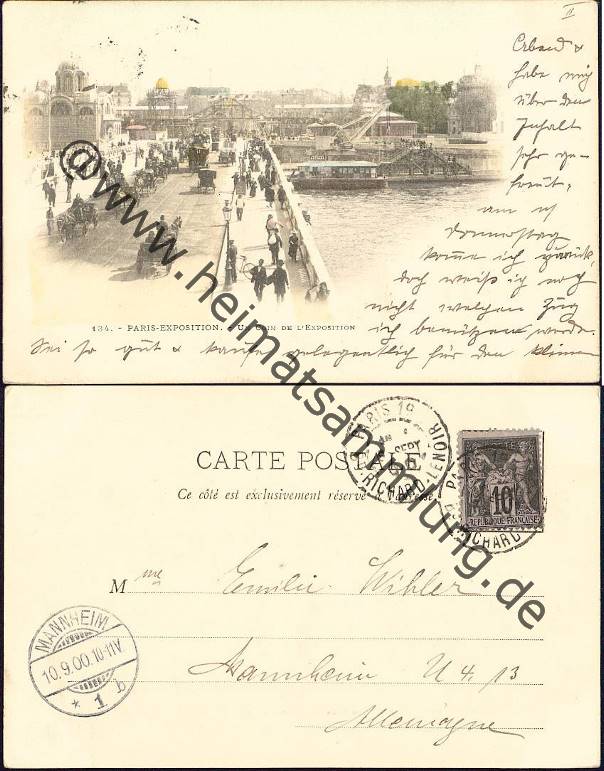 II
Abend &
habe mich
über den
Inhalt
sehr ge-
freut,
am
Donnerstag
komme ich zurück,
doch weiß ich noch
nicht welchen Zug
ich benützen werde.
134. - PARIS-EXPOSITION. - UN COIN DE L'EXPOSITION
Sei so gut & kaufe gelegentlich für den kleinen
@www.heimatsammlung.de
PARIS 19
SEPT
RICHARD LENOIR
POSTES
10
REPUBLIQUE FRANÇAISE
PARIS
RICHARD
CARTE POSTALE
Ce côté est exclusivement réservé à l'adresse
Mme Emilie Wihler
Mannheim U 4, 13
Allemagne
MANNHEIM
10.9.00.10-11V
* 1 b